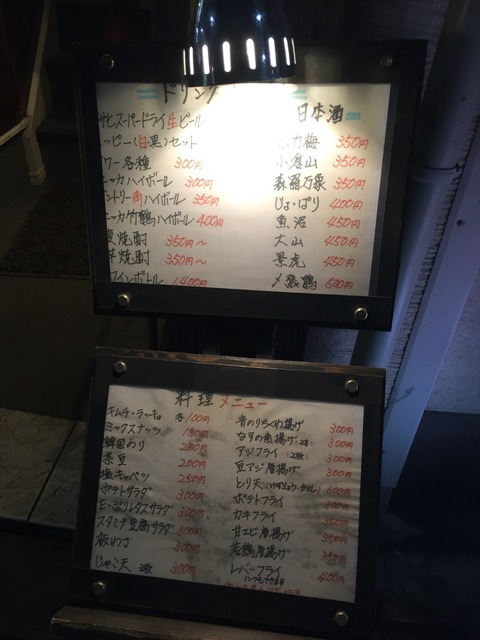 ドリンク
スーパードライ生ビール
ッピー(白・黒)セット
ワー各種 300円
ッカハイボール 300円
ントリー角ハイボール 350円
ッカ竹鶴ハイボール 400円
焼酎 350円～
芋焼酎 350円～
ワインボトル 1,400円
日本酒
竹梅 350円
小倉山 350円
森羅万象 350円
じょっぱり 400円
魚沼 450円
大山 450円
景虎 450円
〆張鶴 500円
料理メニュー
キムチ・ラッキョ 各100円
ミックスナッツ
韓国のり 200円
茶豆 200円
塩キャベツ 250円
ポテトサラダ 300円
スタミナ豆腐サラダ 300円
板わさ 300円
じゃこ天 2枚 300円
青のりちくわ揚げ 300円
揚げ 300円
アジフライ(2枚) 300円
豆アジ唐揚げ 300円
とり天 300円
ポテトフライ 300円
カキフライ 350円
甘エビ唐揚げ 350円
若鶏唐揚げ 350円
レバーフライ 400円